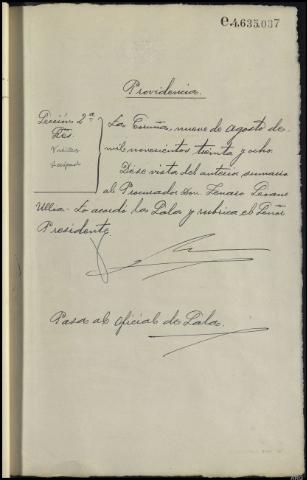 C.4.635.037
Providencia.
Sección 2ª
La Coruña, nueve de Agosto de
mil novecientos treinta y ocho.
Dése vista del anterior sumario
al Procurador Don
Ulloa. Lo acordó la Sala y rubrica el Señor
Presidente.
Pasa al oficial de Sala.